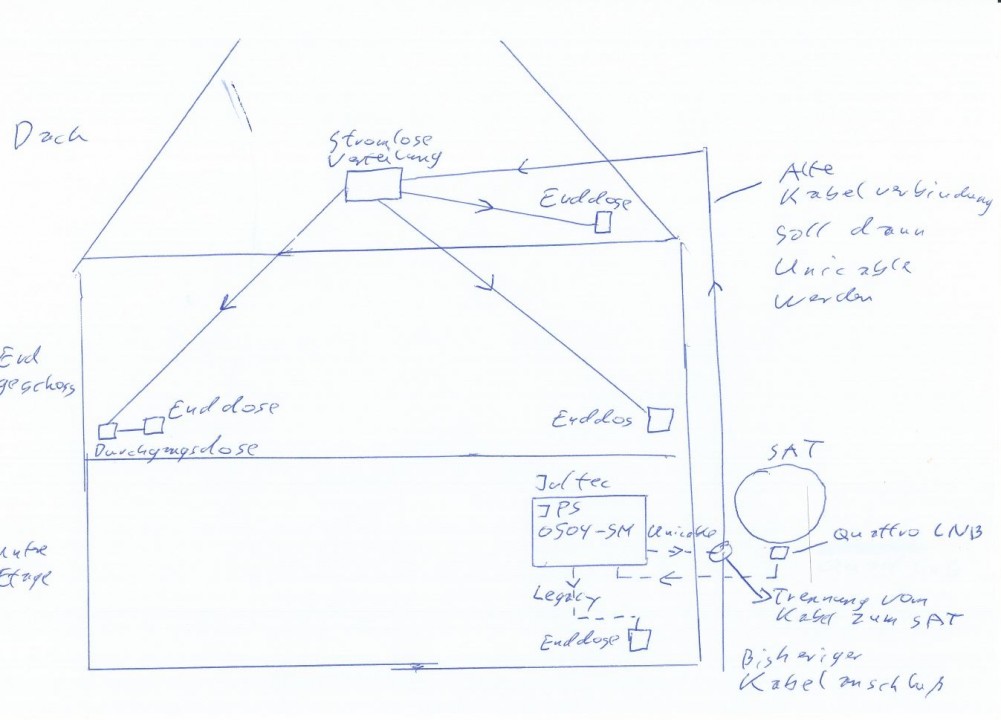 Dach
Stromlose
Verteilung
Enddose
Alte
Kabelverbindung
soll dann
Unicable
werden
Erd
geschoss
Enddose
Durchgangsdose
Enddos
SAT
Jultec
JPS
0504-SM
Unicable
Quattro LNB
untre
Etage
Legacy
Trennung vom
Kabel zum SAT
Enddose
Bisheriger
Kabelanschluß